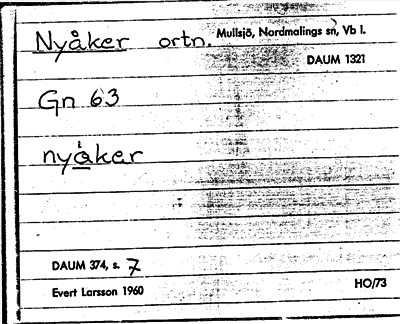 Nyåker ortn. Mullsjö, Nordmalings sn, Vb l.
DAUM 1321
Gn 63
nyåker
DAUM 374, s. 7
Evert Larsson 1960 HO/73